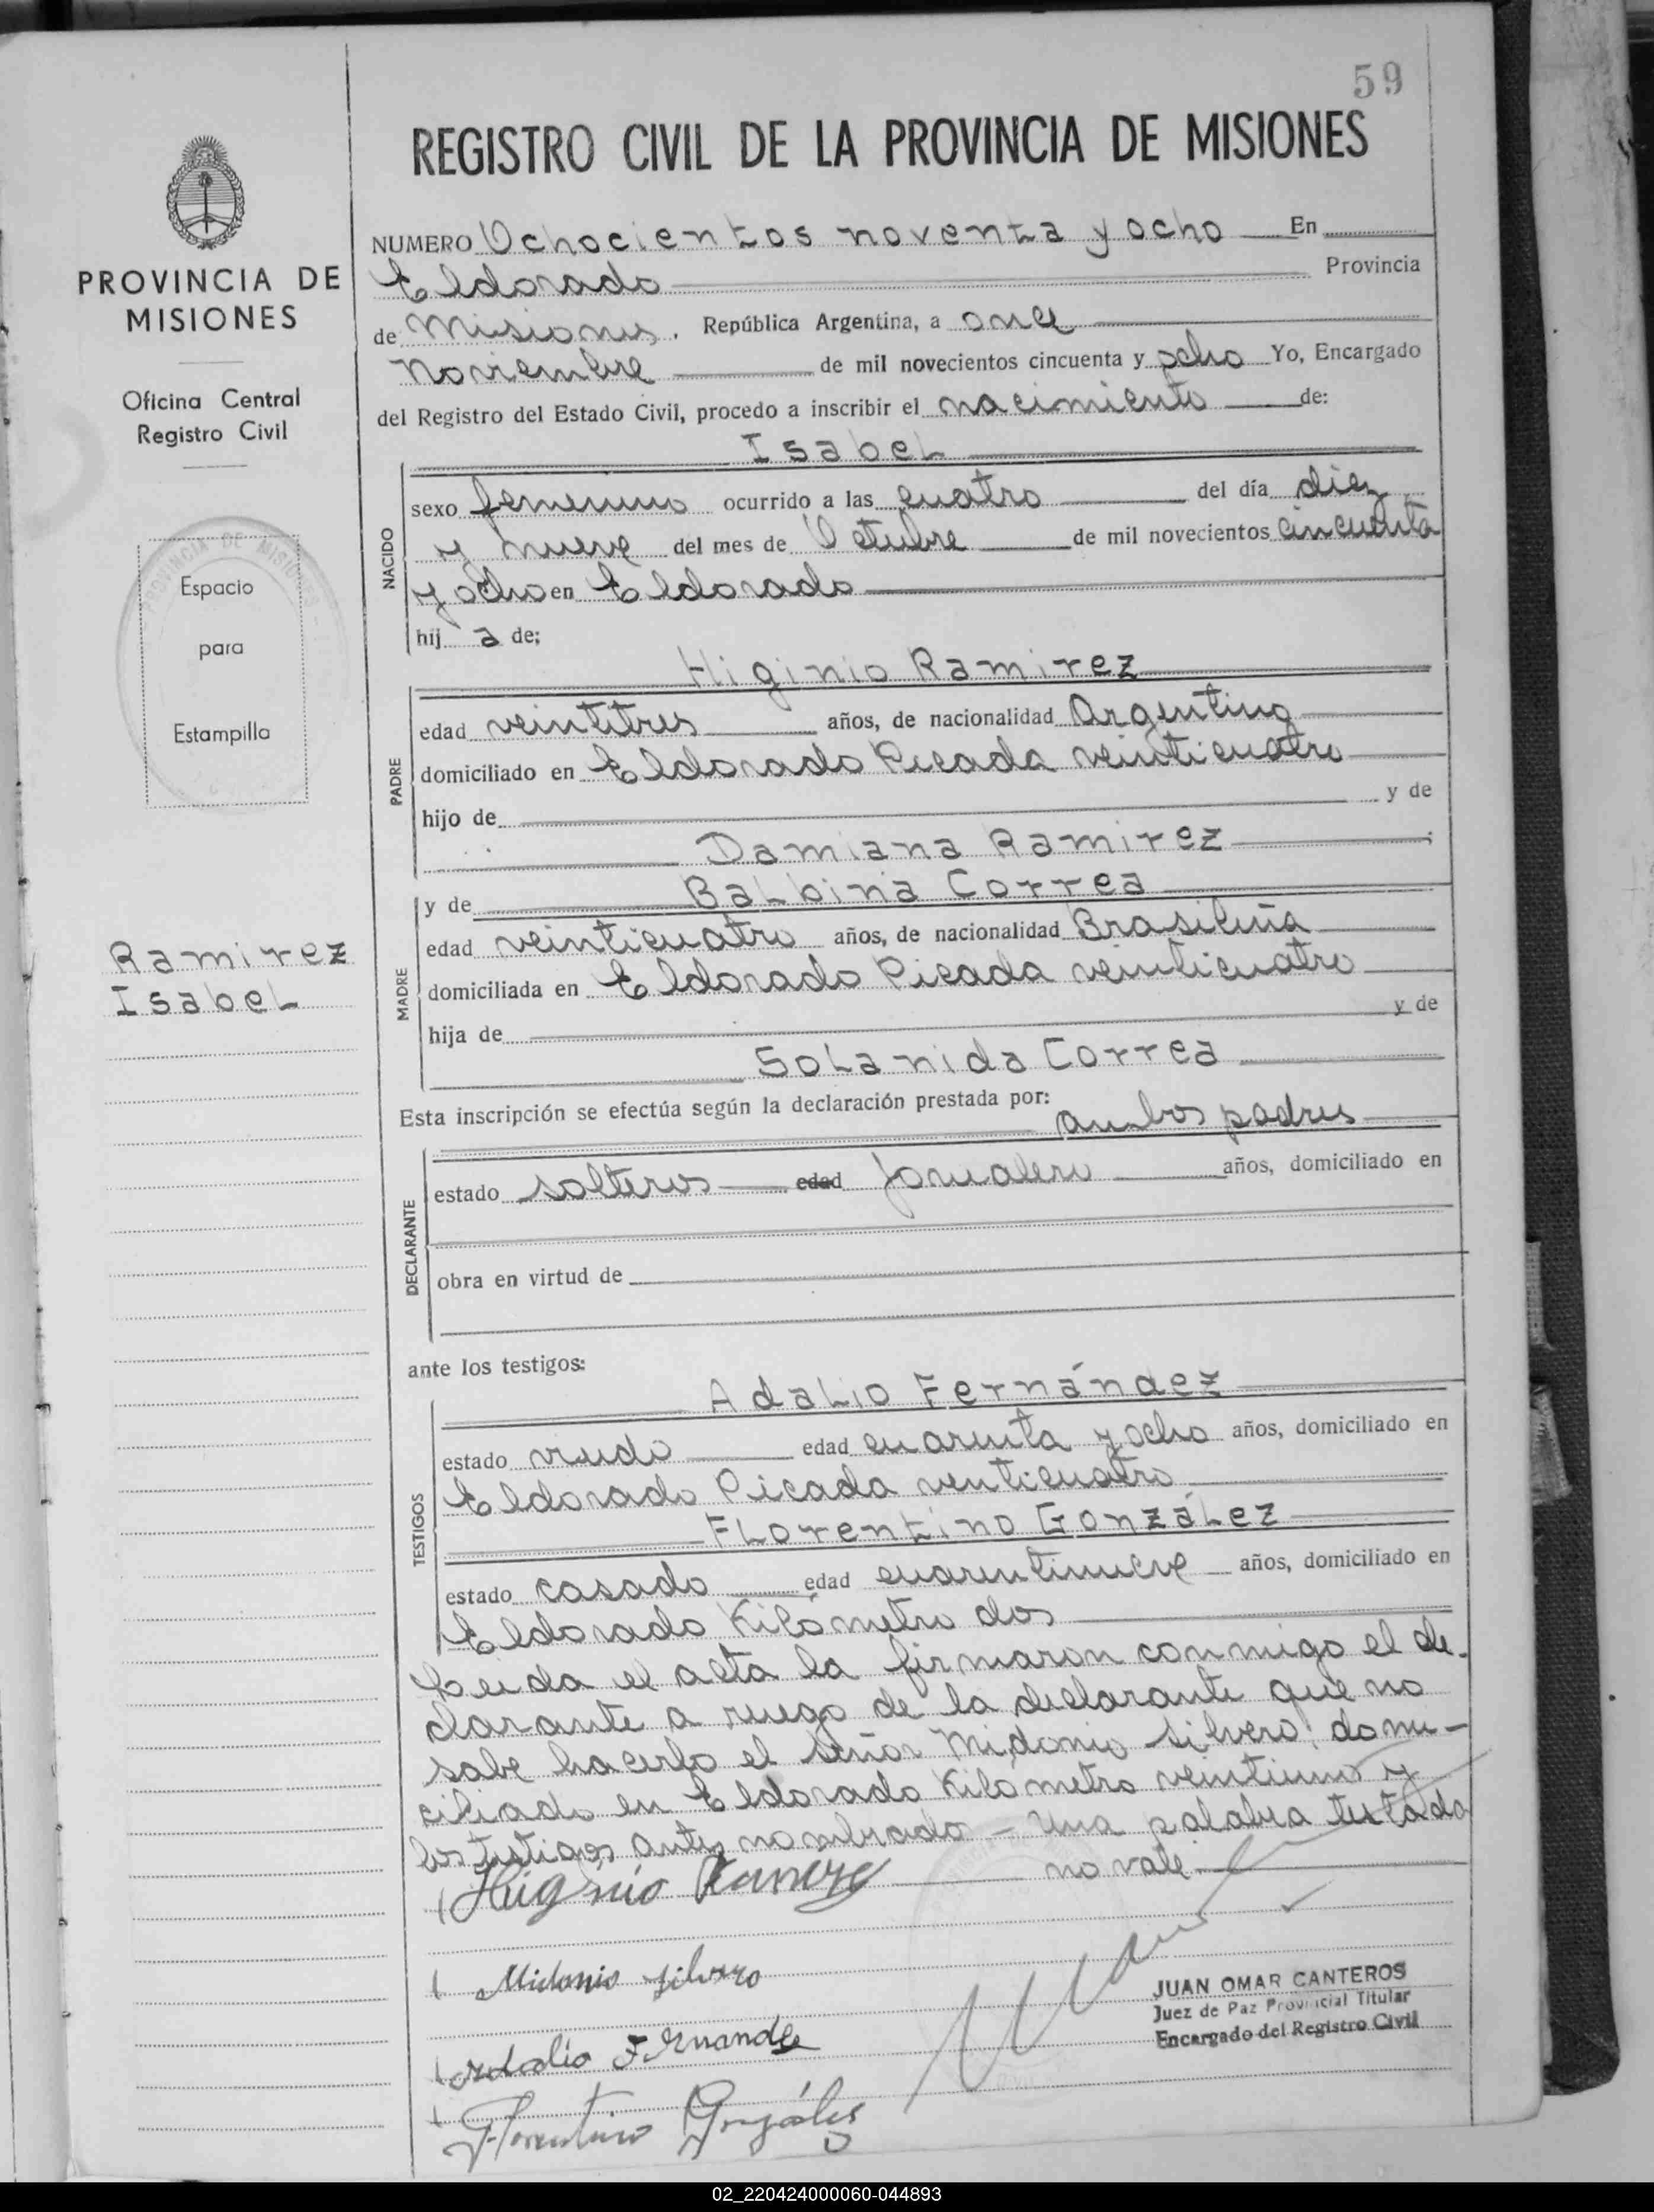 59
REGISTRO CIVIL DE LA PROVINCIA DE MISIONES
PROVINCIA DE
MISIONES
Oficina Central
Registro Civil
Espacio
para
Estampilla
Ramirez
Isabel
NUMERO Ochocientos noventa y ocho En
Eldorado Provincia
de Misiones. República Argentina, a once
Noviembre de mil novecientos cincuenta y ocho Yo, Encargado
del Registro del Estado Civil, procedo a inscribir el nacimiento de:
Isabel
NACIDO
sexo femenino ocurrido a las cuatro del día diez
y nueve del mes de Octubre de mil novecientos cincuenta
y ocho en Eldorado
hij a de;
Higinio Ramirez
PADRE
edad veintitres años, de nacionalidad Argentino
domiciliado en Eldorado Picada veinticuatro
hijo de y de
Damiana Ramirez ;
y de Balbina Correa
MADRE
edad veinticuatro años, de nacionalidad Brasileña
domiciliada en Eldorado Picada veinticuatro
hija de y de
Solanida Correa
Esta inscripción se efectúa según la declaración prestada por:
ambos padres
DECLARANTE
estado solteros edad Jornalero años, domiciliado en
obra en virtud de
ante los testigos:
Adalio Fernández
TESTIGOS
estado viudo edad cuarenta y ocho años, domiciliado en
Eldorado Picada venticuatro
Florentino González
estado casado edad cuarentinueve años, domiciliado en
Eldorado Kilómetro dos
Leida el acta la firmaron conmigo el de-
clarante a ruego de la declarante que no
sabe hacerlo el señor Midonio Silvero: domi-
ciliado en Eldorado Kilómetro veintiuno y
los testigos antes nombrado - Una palabra testada
no vale.
Higinio Ramirez
Midonio Silvero
Adalio Fernandez
Florentino González
JUAN OMAR CANTEROS
Juez de Paz Provincial Titular
Encargado del Registro Civil
02_220424000060-044893